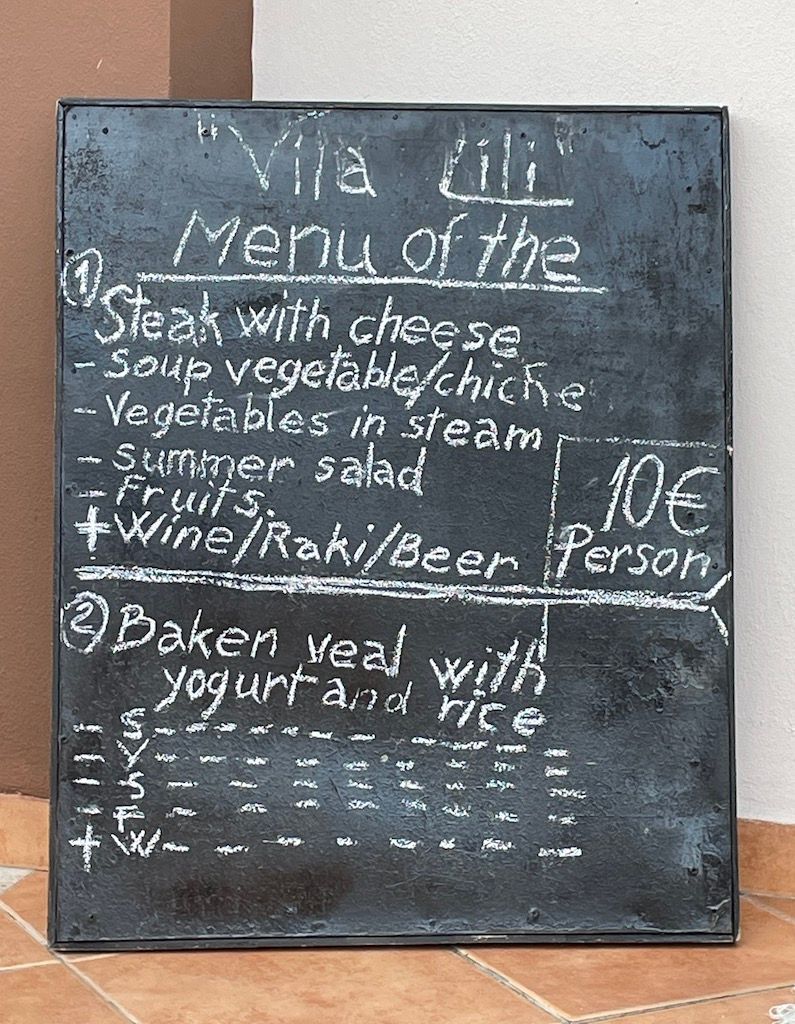 "Vila Lili"
Menu of the
① Steak with cheese
- Soup vegetable/chicke
- Vegetables in steam
- Summer salad
- Fruits.
+ Wine/Raki/Beer
10€
Person
② Baken veal with
yogurt and rice
- S - - - - - - - - -
- V - - - - - - -
- S - - - - - - -
- F - - - - - - -
+ W - - - - - - - -